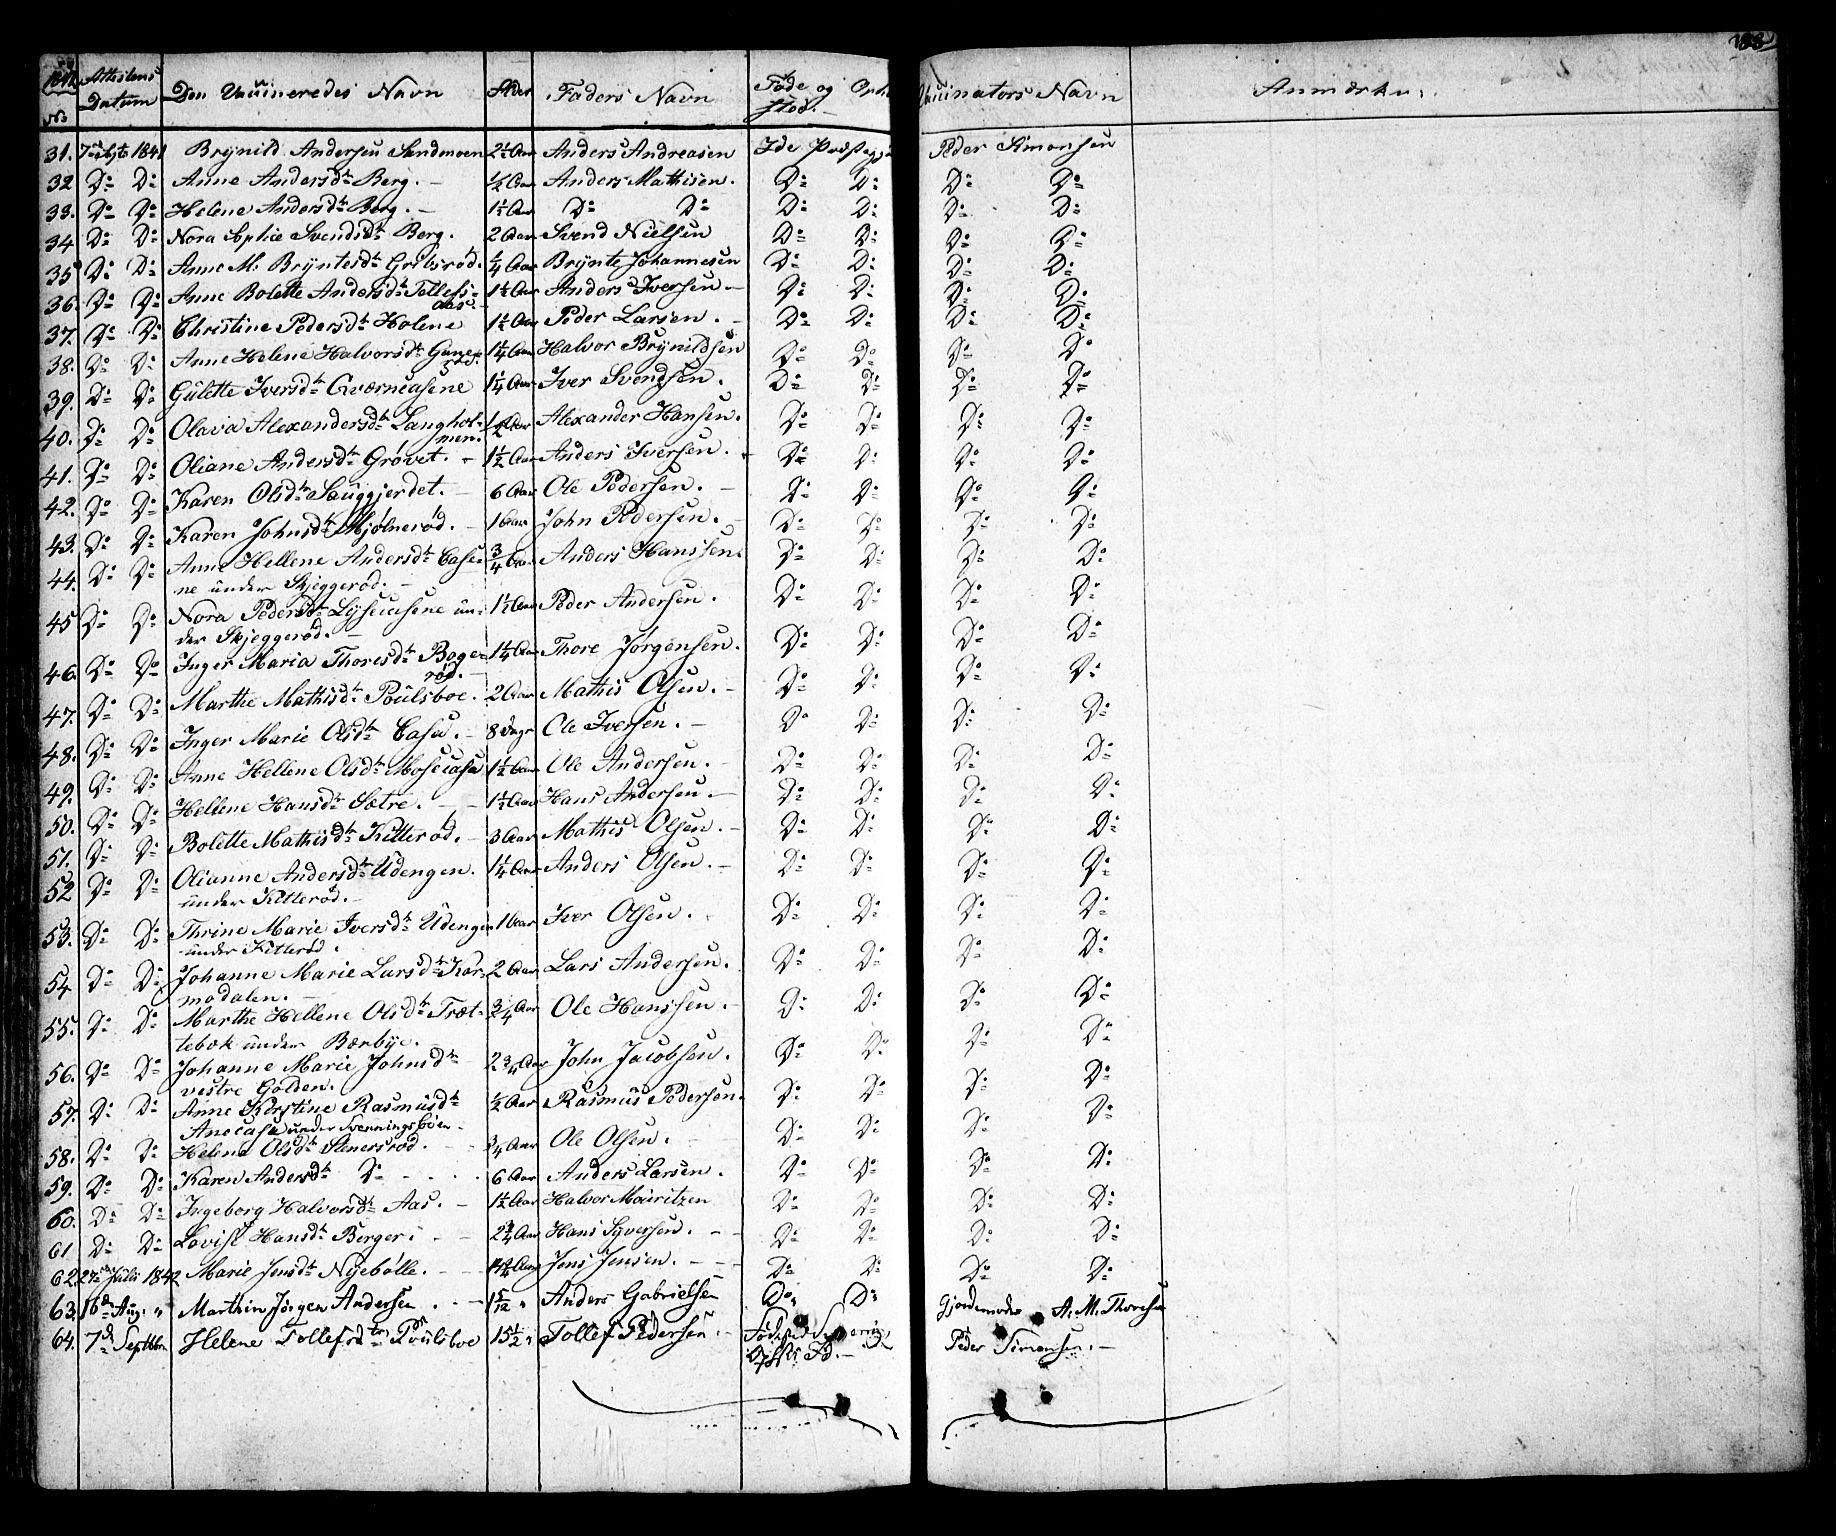 188
1842 Attestens Datum Den Vaccineredes Navn Alder Faders Navn Føde og Opholdssted. Vaccinators Navn Anmærkn:
No
31. 1841 Brynild Andersen Sandmoen 2½ Aar Anders Andreasen Idde Peder Simonsen
32 Do Do Anne Andersdtr Berg. ½ Aar Anders Mathisen. Do Do Do Do
33. Do Do Helene Andersdtr Berg. 1½ Aar Do Do Do Do Do Do
34 Do Do Nora Sophie Svendsdtr Berg. 2 Aar Svend Nielsen Do Do Do Do
35 Do Do Anne M. Bryntesdtr Gribsrød. ¼ Aar Brynte Johannesen Do Do Do Do
36. Do Do Anne Bolette Andersdtr Tollefs-
aas. 1½ Aar Anders Iversen Do Do Do Do
37. Do Do Christine Pedersdtr Holene 1½ Aar Peder Larsen. Do Do Do Do
38. Do Do Anne Helene Halvorsdtr 1¼ Aar Halvor Brynildsen Do Do Do Do
39. Do Do Gulette Iversdtr Qværneasene 1¼ Aar Iver Svendsen. Do Do Do Do
40. Do Do Olava Alexandersdtr Langhol-
men. ½ Aar Alexander Hansen. Do Do Do Do
41. Do Do Oliane Andersdtr Grøvet. 1½ Aar Anders Iversen. Do Do Do Do
42. Do Do Karen Olsdtr Sauggjerdet. 6 Aar Ole Pedersen. Do Do Do Do
43. Do Do Karen Johnsdtr Mjølnerød. 1 Aar John Pedersen. Do Do Do Do
44. Do Do Anne Hellene Andersdtr Case-
ne under Skjeggerød. ¾ Aar Anders Hanssen. Do Do Do Do
45 Do Do Nora Pedersdtr Lyseasene un-
der Skjeggerød. 1½ Aar Peder Andersen. Do Do Do Do
46. Do Do Inger Maria Thoresdtr Boge-
rød. 1¼ Aar Thore Jørgensen. Do Do Do Do
47. Do Do Marthe Mathisdtr Poulsboe. 2 Aar Mathis Olsen. Do Do Do Do
48. Do Do Inger Marie Olsdtr Casa. 8 Dage Ole Iversen. Do Do Do Do
49. Do Do Anne Hellene Olsdtr Mosecasa 1½ Aar Ole Andersen. Do Do Do Do
50. Do Do Hellene Hansdtr Sætre. 1½ Aar Hans Andersen. Do Do Do Do
51. Do Do Bolette Mathisdtr Kitterød. 3 Aar Mathis Olsen. Do Do Do Do
52 Do Do Olianne Andersdtr Udengen.
under Kitterød. 1¼ Aar Anders Olsen. Do Do Do Do
53. Do Do Thrine Marie Iversdtr Udengen
under Kitterød. 1 Aar Iver Olsen. Do Do Do Do
54 Do Do Johanne Marie Larsdtr Kor-
modalen. 2 Aar Lars Andersen. Do Do Do Do
55. Do Do Marthe Hellene Olsdtr Træt-
tebæk under Bærbye. ¾ Aar Ole Hanssen. Do Do Do Do
56. Do Do Johanne Marie Johnsdtr
vestre Golden. 2¾ Aar John Jacobsen. Do Do Do Do
57. Do Do Anne Kerstine Rasmusdtr
Anecasa under Svenningsbøen. ½ Aar Rasmus Pedersen. Do Do Do Do
58. Do Do Helene Olsdtr Stenersrød. ¾ Aar Ole Olsen. Do Do Do Do
59. Do Do Karen Andersdtr Do 6 Aar Anders Larsen. Do Do Do Do
60. Do Do Ingeborg Halvorsdtr Aas. 1½ Aar Halvor Mauritzen Do Do Do Do
61 Do Do Lovise Hansdtr Berger 2¾ Aar Hans Syversen. Do Do Do Do
62 27de Juli 1842 Marie Jensdtr Nyebølle. Aar Jens Jensen. Do Do Do Do
63. 16de Aug. " Marthin Jørgen Andersen 1 5/12 " Anders Gabrielsen Do Do Gjordemoder A. M. Thoresen
64. 7de Septbr Helene Tollefsdtr Poulsboe 15½ " Tollef Pedersen Peder Simonsen.